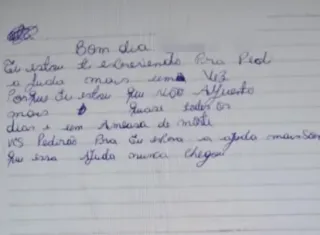 Bom dia
Eu estou ti escrevendo Pra Pedi
a Juda mais uma Vez
Porque Eu estou que não Alguento
mais quase todos os
dias e um Ameasa de morte
vcs Pedirão Pra Eu espera a ajuda mais
que essa Ajuda nunca chegou